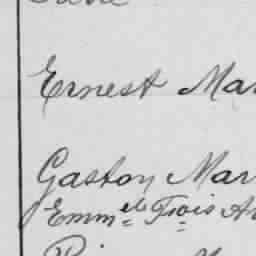 Ernest Mar
Gaston Mar
Emm.el Frois An